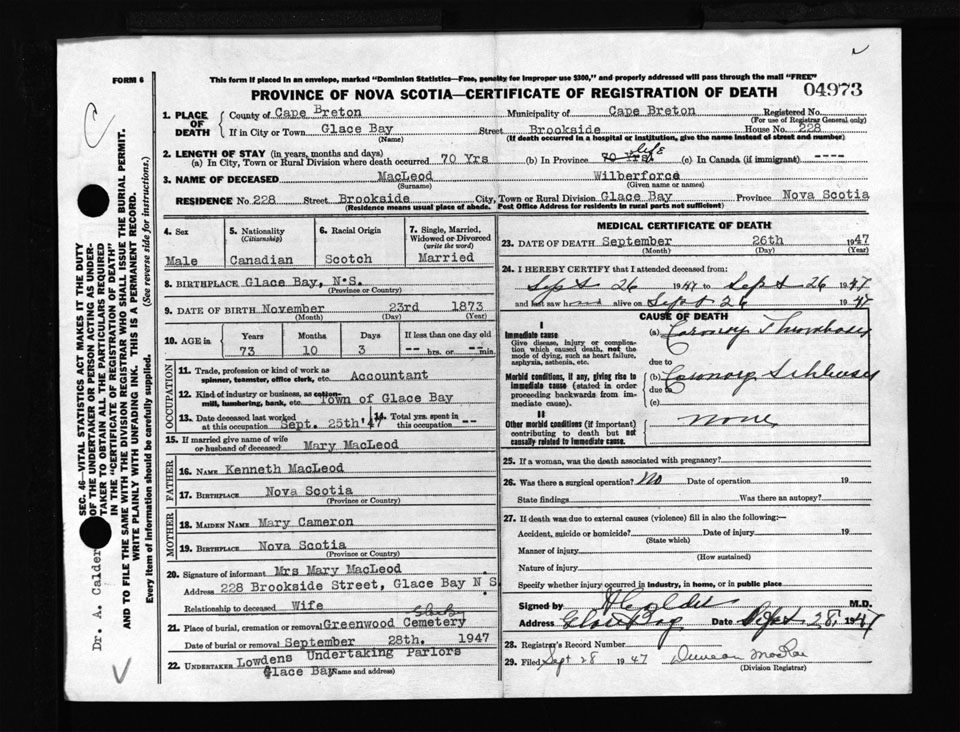 FORM 6
This form if placed in an envelope, marked "Dominion Statistics—Free, penalty for improper use $300," and properly addressed will pass through the mail "FREE"
PROVINCE OF NOVA SCOTIA—CERTIFICATE OF REGISTRATION OF DEATH 04973
1. PLACE OF DEATH County of Cape Breton Municipality of Cape Breton Registered No.
(For use of Registrar General only)
If in City or Town Glace Bay Street Brookside House No. 228
(Name) (If death occurred in a hospital or institution, give the name instead of street and number)
2. LENGTH OF STAY (in years, months and days)
(a) In City, Town or Rural Division where death occurred 70 Yrs (b) In Province 70 Yrs. life (c) In Canada (if immigrant) ----
3. NAME OF DECEASED MacLeod Wilberforce
(Surname) (Given name or names)
RESIDENCE No. 228 Street Brookside City, Town or Rural Division Glace Bay Province Nova Scotia
(Residence means usual place of abode. Post Office Address for residents in rural parts not sufficient)
4. Sex 5. Nationality (Citizenship) 6. Racial Origin 7. Single, Married, Widowed or Divorced (write the word)
Male Canadian Scotch Married
8. BIRTHPLACE Glace Bay, N.S.
(Province or Country)
9. DATE OF BIRTH November 23rd 1873
(Month) (Day) (Year)
10. AGE in Years Months Days If less than one day old
73 10 3 -- hrs. or -- min.
OCCUPATION
11. Trade, profession or kind of work as spinner, teamster, office clerk, etc. Accountant
12. Kind of industry or business, as cotton-mill, lumbering, bank, etc. Town of Glace Bay
13. Date deceased last worked at this occupation Sept. 25th '47 14. Total yrs. spent in this occupation --
15. If married give name of wife or husband of deceased Mary MacLeod
FATHER
16. NAME Kenneth MacLeod
17. BIRTHPLACE Nova Scotia
(Province or Country)
MOTHER
18. MAIDEN NAME Mary Cameron
19. BIRTHPLACE Nova Scotia
(Province or Country)
20. Signature of informant Mrs Mary MacLeod
Address 228 Brookside Street, Glace Bay N S
Relationship to deceased Wife
21. Place of burial, cremation or removal Greenwood Cemetery
Date of burial or removal September 28th. 1947
22. UNDERTAKER Lowdens Undertaking Parlors
Glace Bay (Name and address)
MEDICAL CERTIFICATE OF DEATH
23. DATE OF DEATH September 26th 1947
(Month) (Day) (Year)
24. I HEREBY CERTIFY that I attended deceased from:
Sept 26 1947 to Sept 26 1947
and last saw h alive on Sept 26 1947
CAUSE OF DEATH
I
Immediate cause
Give disease, injury or complication which caused death, not the mode of dying, such as heart failure, asphyxia, asthenia, etc.
(a) Coronary Thrombosis
due to
Morbid conditions, if any, giving rise to immediate cause (stated in order proceeding backwards from immediate cause).
(b) Coronary Sclerosis
due to
(c)
II
Other morbid conditions (if important) contributing to death but not causally related to immediate cause.
None
25. If a woman, was the death associated with pregnancy?
26. Was there a surgical operation? No Date of operation 19
State findings Was there an autopsy?
27. If death was due to external causes (violence) fill in also the following:—
Accident, suicide or homicide? Date of injury 19
(State which)
Manner of injury
(How sustained)
Nature of injury
Specify whether injury occurred in industry, in home, or in public place
Signed by A Calder M.D.
Address Glace Bay Date Sept 28, 1947
28. Registrar's Record Number
29. Filed Sept 28 1947 Duncan MacRae
(Division Registrar)
SEC. 46—VITAL STATISTICS ACT MAKES IT THE DUTY
OF THE UNDERTAKER OR PERSON ACTING AS UNDER-
TAKER TO OBTAIN ALL THE PARTICULARS REQUIRED
IN THE "CERTIFICATE OF REGISTRATION OF DEATH"
AND TO FILE THE SAME WITH THE DIVISION REGISTRAR WHO SHALL ISSUE THE BURIAL PERMIT.
WRITE PLAINLY WITH UNFADING INK. THIS IS A PERMANENT RECORD.
Every item of information should be carefully supplied. (See reverse side for instructions.)
Dr. A. Calder